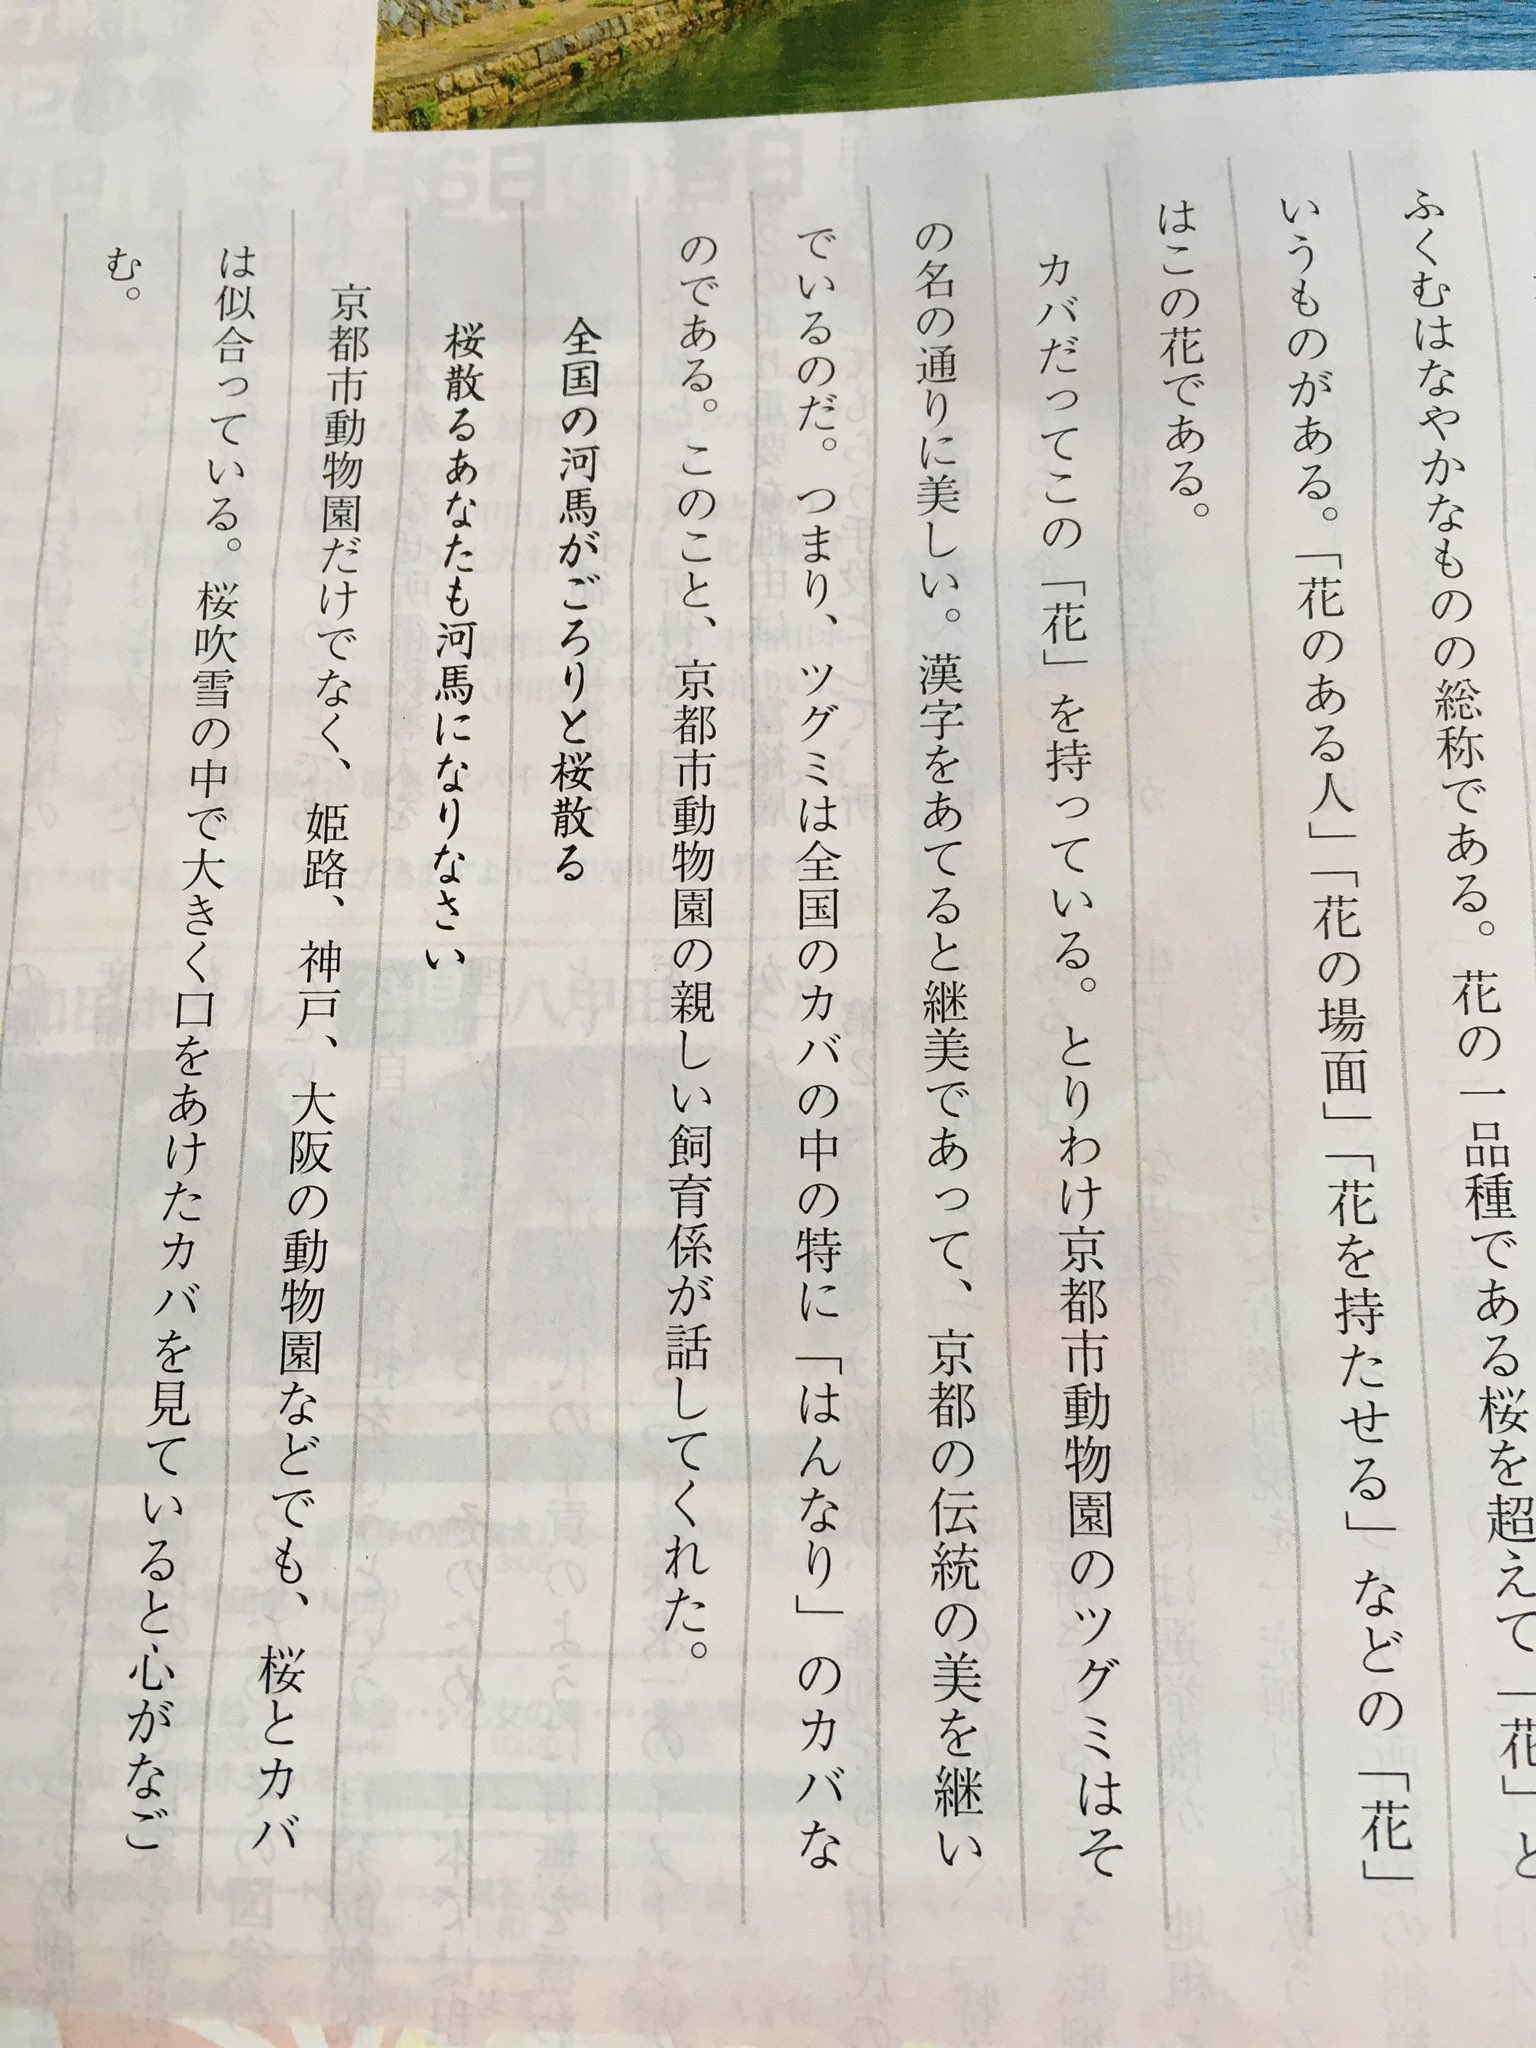 ふくむはなやかなものの総称である。花の一品種である桜を超えて「花」と
いうものがある。「花のある人」「花の場面」「花を持たせる」などの「花」
はこの花である。
カバだってこの「花」を持っている。とりわけ京都市動物園のツグミはそ
の名の通りに美しい。漢字をあてると継美であって、京都の伝統の美を継い
でいるのだ。つまり、ツグミは全国のカバの中の特に「はんなり」のカバな
のである。このこと、京都市動物園の親しい飼育係が話してくれた。
全国の河馬がごろりと桜散る
桜散るあなたも河馬になりなさい
京都市動物園だけでなく、姫路、神戸、大阪の動物園などでも、桜とカバ
は似合っている。桜吹雪の中で大きく口をあけたカバを見ていると心がなご
む。